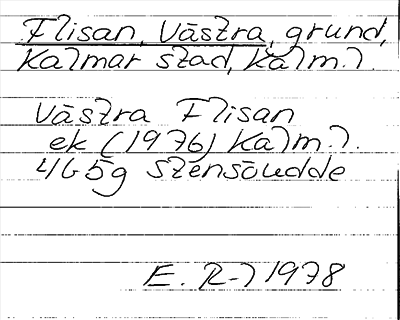 Flisan, Västra, grund,
Kalmar stad, Kalm. l.
Västra Flisan
ek (1976) Kalm. l.
4G5g Stensöudde
E. R-l 1978